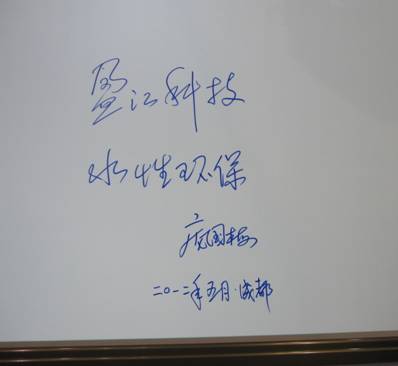 盈江科技
水性环保
二〇一二年五月·成都